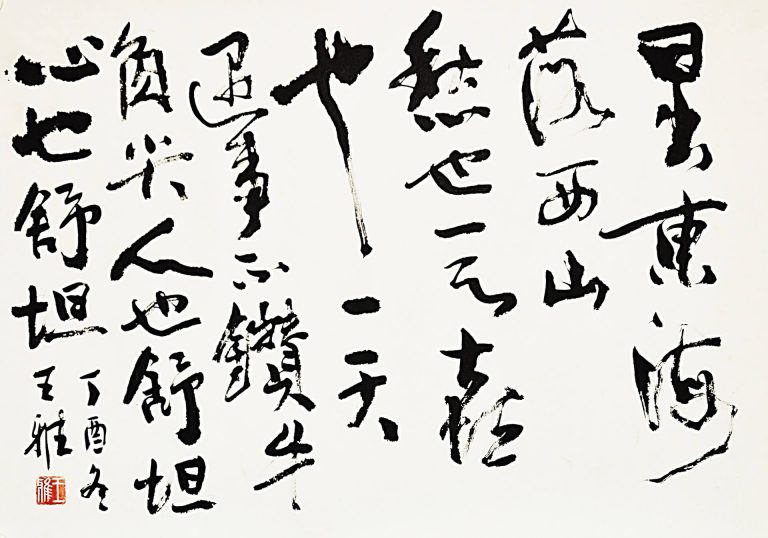 日出東海
落西山
愁也一天喜
也一天
遇事不鑽牛
角尖人也舒坦
心也舒坦
丁酉冬
王雅
王雅